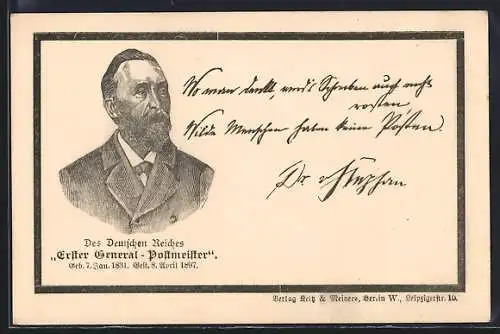 Wo man denkt, wird's Schreiben auch nicht
rosten
Wilde Menschen haben keine Posten.
Dr. v Stephan
Des Deutschen Reiches
„Erster General-Postmeister“.
Geb. 7. Jan. 1831. Gest. 8. April 1897.
Verlag Leitz & Meiners, Berlin W., Leipzigerstr. 10.